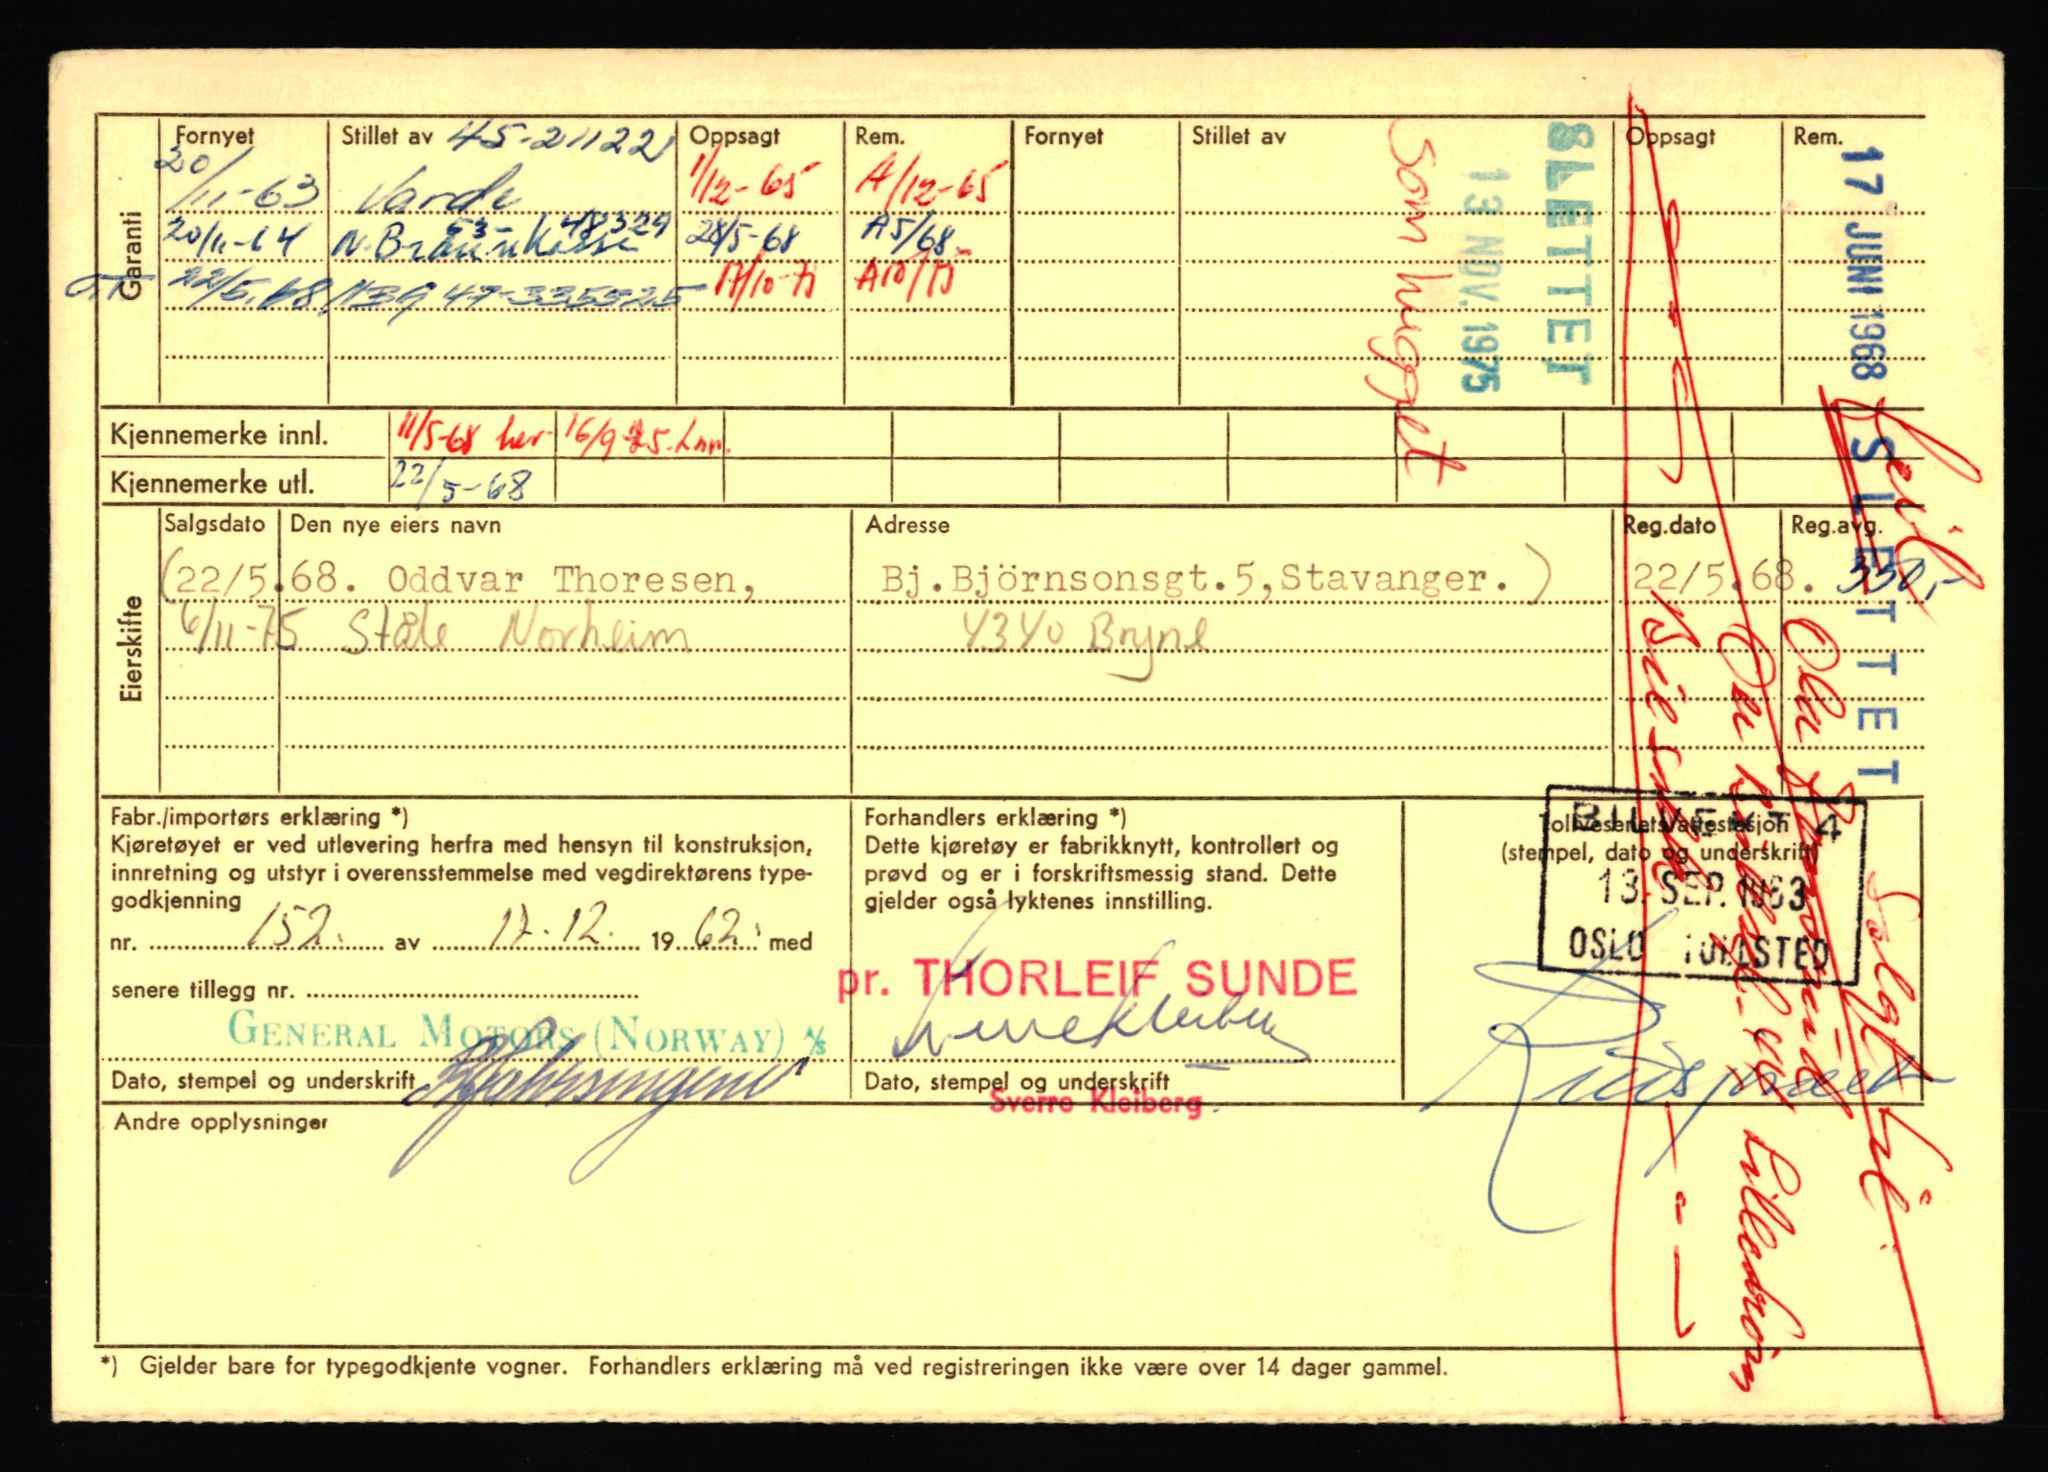 Garanti
Fornyet Stillet av 45-21122 Oppsagt Rem. Fornyet Stillet av Oppsagt Rem.
20/11-63 Varde 1/12-65 A/12-65
20/11-64 N. Braun 53-48329 28/5-68 A5/68
22/5.68 1139 47-335525 17/10-75 A10/75
Kjennemerke innl. 11/5-68 her 16/9-75. Inn.
Kjennemerke utl. 22/5-68
Eierskifte
Salgsdato Den nye eiers navn Adresse Reg.dato Reg.avg.
(22/5.68. Oddvar Thoresen, Bj.Björnsonsgt.5,Stavanger.) 22/5.68. 330,-
6/11-75 Ståle Norheim 4340 Bryne
SLETTET
13 NOV. 1975
Som hugget
17 JUNI 1968
SLETTET
Feil
Solgt til
Ola
Lillestrøm
Fabr./importørs erklæring *)
Kjøretøyet er ved utlevering herfra med hensyn til konstruksjon,
innretning og utstyr i overensstemmelse med vegdirektørens type-
godkjenning
nr. 152. av 17.12. 1962. med
senere tillegg nr.
GENERAL MOTORS (NORWAY) A/S
Dato, stempel og underskrift
Forhandlers erklæring *)
Dette kjøretøy er fabrikknytt, kontrollert og
prøvd og er i forskriftsmessig stand. Dette
gjelder også lyktenes innstilling.
pr. THORLEIF SUNDE
Sverre Kleiberg
Dato, stempel og underskrift
Sverre Kleiberg.
Tollvesenets attestasjon
(stempel, dato og underskrift)
13. SEP. 1963
OSLO TOLLSTED
Andre opplysninger
*) Gjelder bare for typegodkjente vogner. Forhandlers erklæring må ved registreringen ikke være over 14 dager gammel.